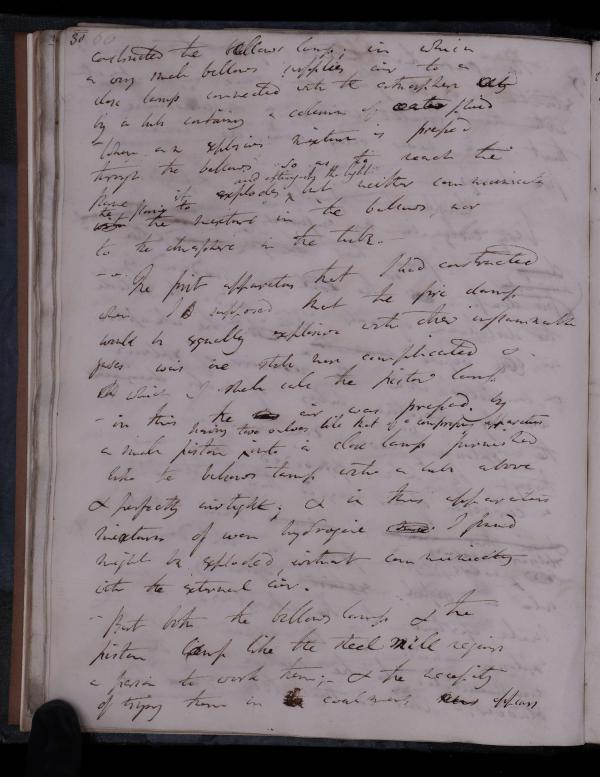 30
constructed the bellows lamp; in which
a very small bellows supplies air to a
close lamp connected with the atmosphere
by a tube containing a column of fluid
- When an explosive mixture is pressed
through the bellows so as to reach the
flame it explodes and extinguishes the light but neither communicates
to the mixture in the bellows, nor
to the atmosphere in the tube. -
- The first apparatus that I had constructed
when I supposed that the fire damp
would be equally explosive with other inflammable
gases was one still more complicated &
which I shall call the piston lamp
- in this the air was pressed by
a small piston having two valves like that of a compressing apparatus into a close lamp furnished
like the bellows lamp with a tube above
& perfectly airtight; & in this apparatus
mixtures of even hydrogene I found
might be exploded without communicating
with the external air.
- But both the bellows lamp & the
piston lamp like the steel mill require
a person to work them; - & the necessity
of trying them in coal mines appears